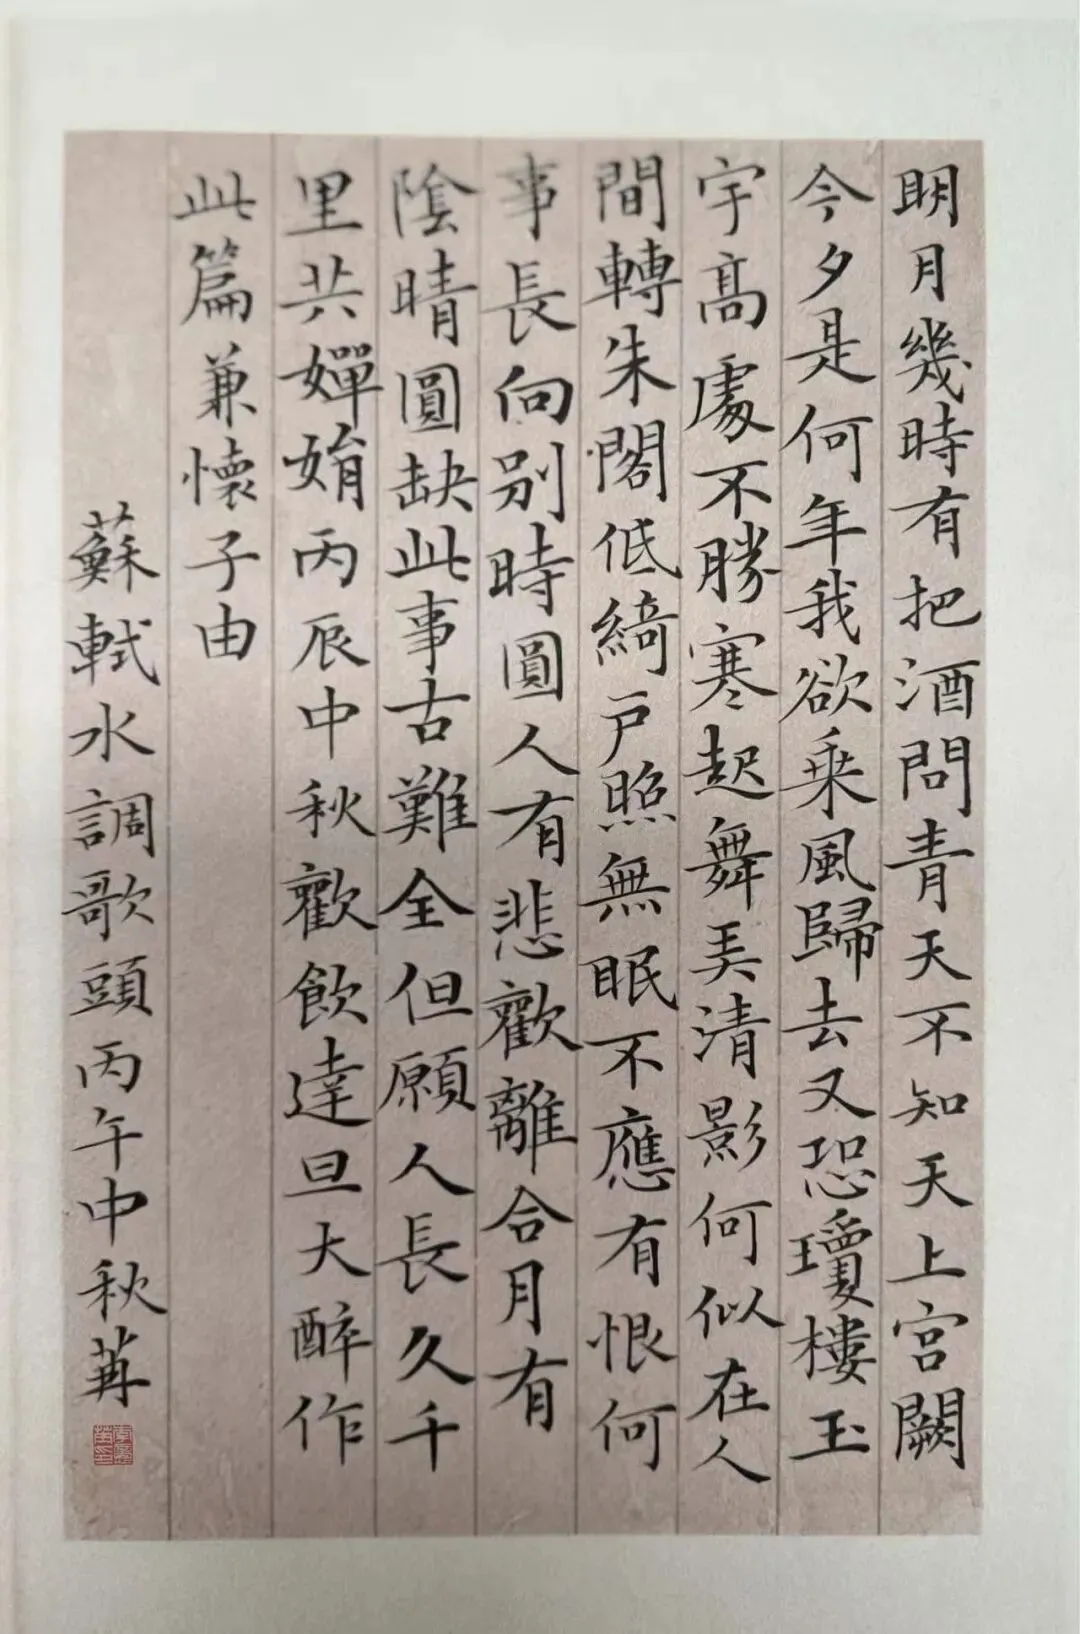 明月幾時有把酒問青天不知天上宮闕
今夕是何年我欲乘風歸去又恐瓊樓玉
宇髙處不勝寒起舞弄清影何似在人
間轉朱閣低綺戶照無眠不應有恨何
事長向別時圓人有悲歡離合月有
陰晴圓缺此事古難全但願人長久千
里共嬋娟丙辰中秋歡飲達旦大醉作
此篇兼懷子由
蘇軾水調歌頭丙午中秋苒